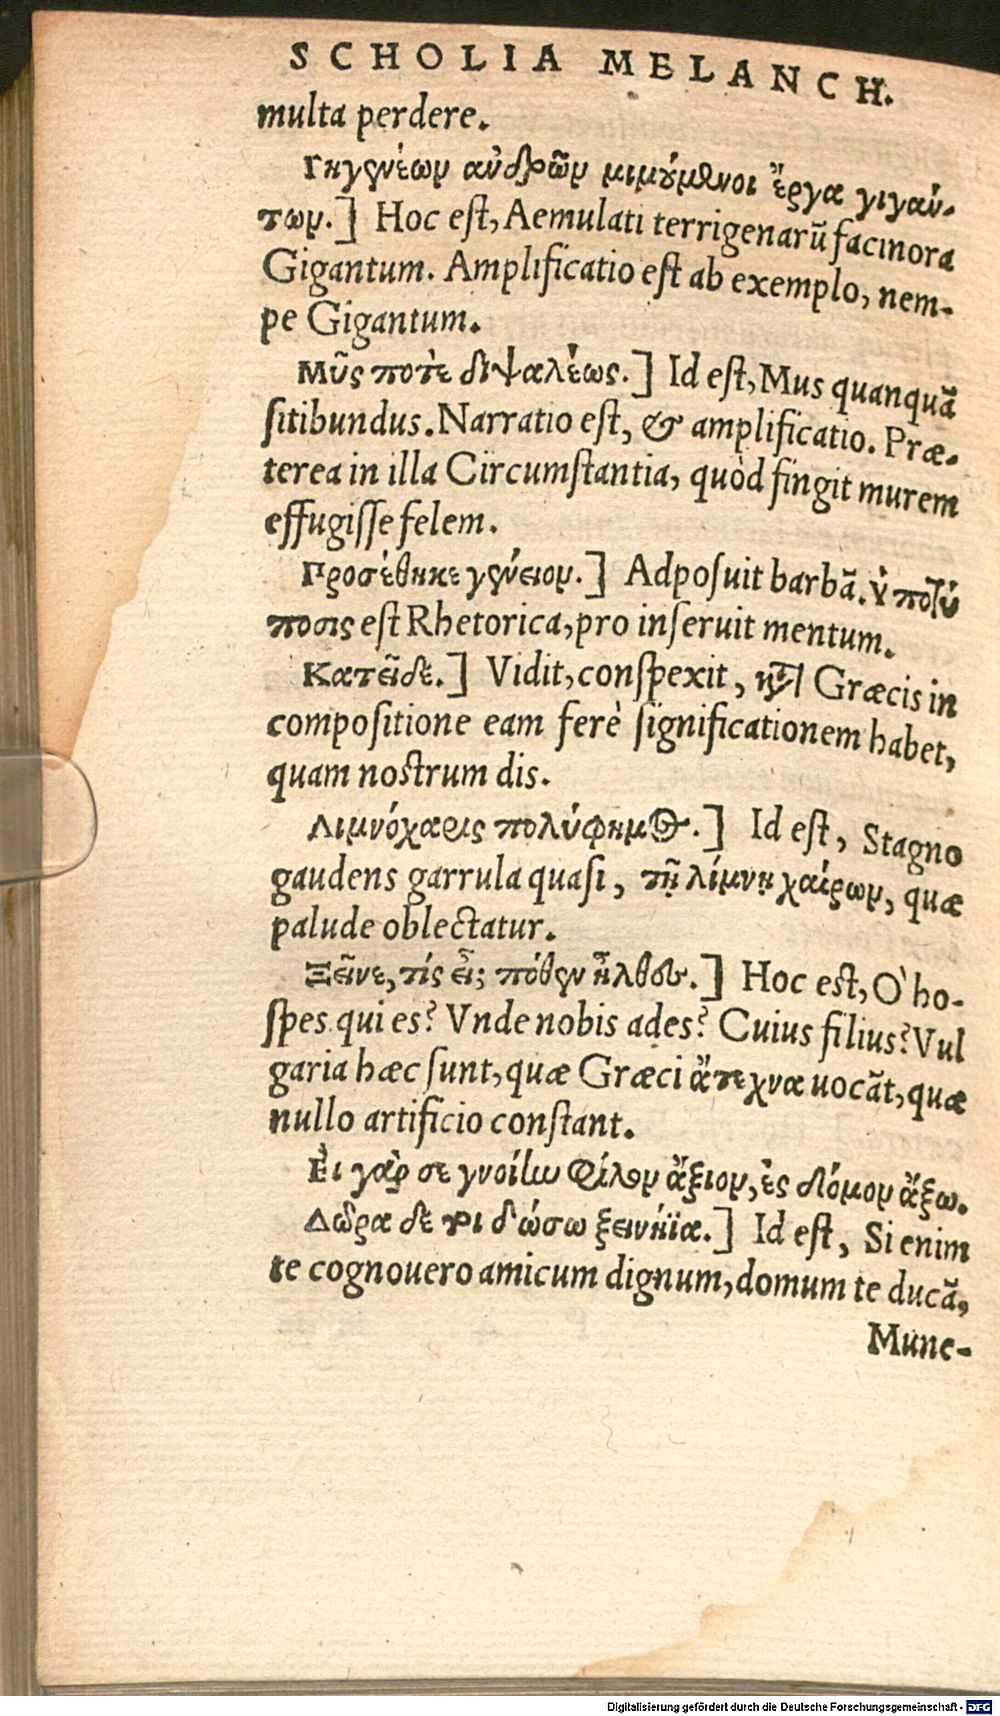 SCHOLIA MELANCH.
multa perdere.
Γηγενέων ανδρῶν μιμούμενοι ἔργα γιγάν-
των.] Hoc eſt, Aemulati terrigenarū facinora
Gigantum. Amplificatio eſt ab exemplo, nem-
pe Gigantum.
Μῦς ποτὲ διψαλέως.] Id eſt, Mus quanquā
ſitibundus. Narratio eſt, & amplificatio. Præ-
terea in illa Circumſtantia, quòd fingit murem
effugiſſe felem.
Προσέθηκε γένειον.] Adpoſuit barbā. ὑποτύ
ποσις eſt Rhetorica, pro inſeruit mentum.
Κατεῖδε.] Vidit, conſpexit, Græcis in
compoſitione eam ferè ſignificationem habet,
quam nostrum dis.
Λιμνόχαρις πολύφημος.] Id eſt, Stagno
gaudens garrula quaſi, τῇ λίμνῃ χαίρων, quæ
palude oblectatur.
Ξεῖνε, τίς εἶ; πόθεν ἦλθες.] Hoc est, O' ho-
ſpes qui es? Vnde nobis ades? Cuius filius? Vul
garia hæc ſunt, quæ Græci ἄτεχνα uocāt, quæ
nullo artificio conſtant.
Εἰ γάρ σε γνοίην φίλον ἄξιον, ἐς δόμον ἄξω.
Δῶρα δέ τοι δώσω ξεινήϊα.] Id eſt, Si enim
te cognouero amicum dignum, domum te ducā,
Mune-
Digitalisierung gefördert durch die Deutsche Forschungsgemeinschaft - DFG